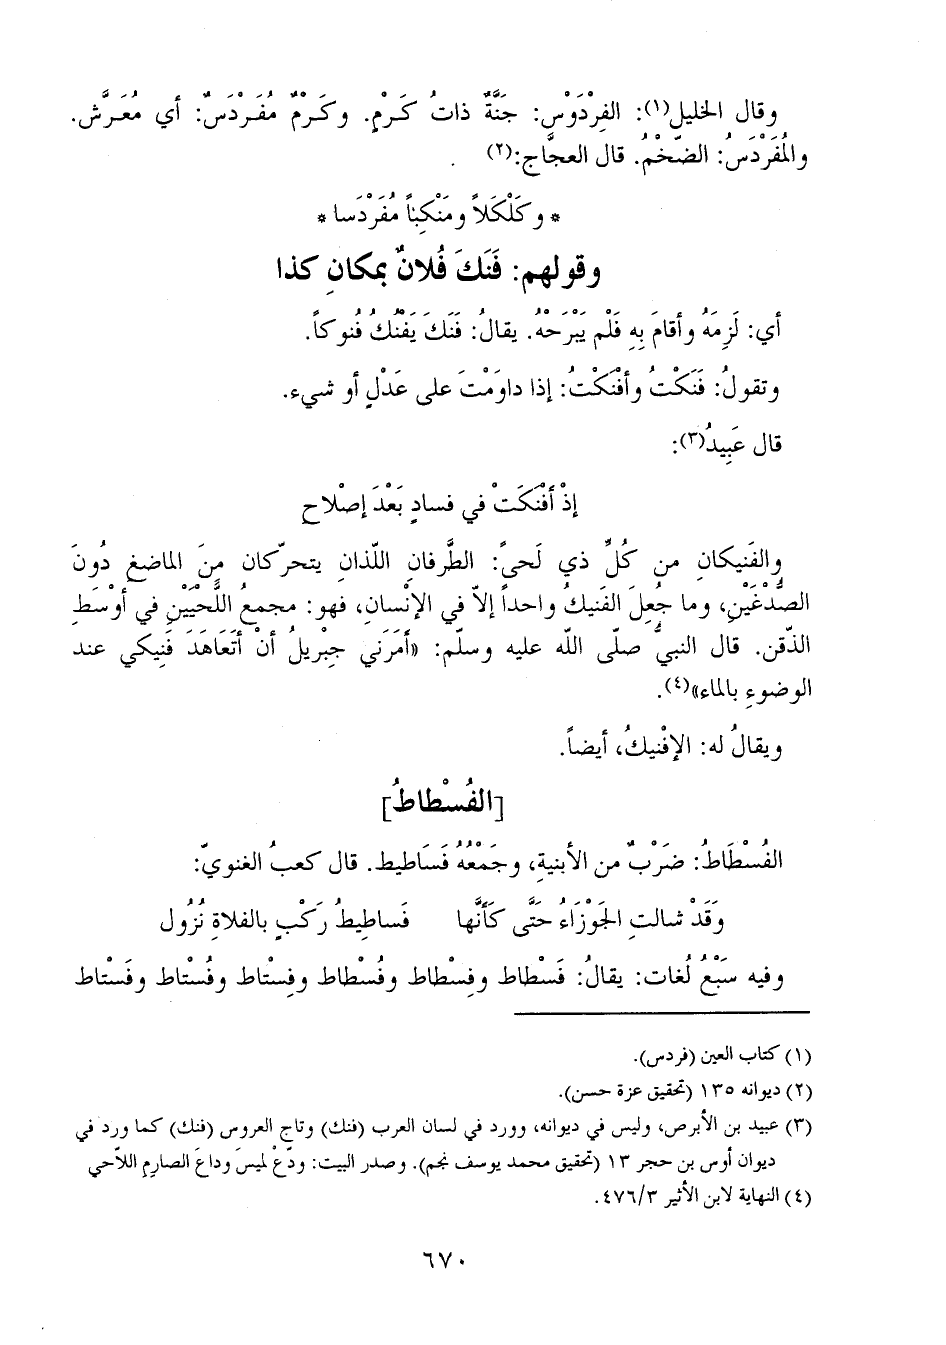 وقال الخليل(١): الفِرْدَوْس: جَنَّةٌ ذاتُ كَرْمٍ. وكَرْمٌ مُفَرْدَسٌ: أي مُعَرَّش.
والمُفَرْدَسُ: الضّخْمُ. قال العجّاج:(٢)
* وكَلْكَلاً ومَنْكِباً مُفَرْدَسا *
وقولهم: فَنَكَ فُلانٌ بمكانِ كذا
أي: لَزِمَهُ وأقامَ بِهِ فَلْم يَبْرَحْهُ. يقالُ: فَنَكَ يَفْنُكُ فُنوكاً.
وتقولُ: فَنَكْتُ وأفْنَكْتُ: إذا داوَمْتَ على عَدْلٍ أو شيء.
قال عَبِيدُ(٣):
إذْ أفْنَكَتْ في فسادٍ بَعْدَ إصْلاح
والفَنيكانِ من كُلِّ ذي لَحىً: الطَّرفانِ اللّذانِ يتحركان مِنَ الماضغِ دُونَ
الصُّدْغَيْنِ، وما جُعِلَ الفَنيكُ واحداً إلاّ في الإنْسانِ، فهو: مجمعُ اللَّحْيَيْنِ في أوْسَطِ
الذّقن. قال النبيُّ صلّى الله عليه وسلّم: «أمَرَني جِبْريلُ أنْ أتَعَاهَدَ فَنِيكي عند
الوضوءِ بالماء»(٤).
ويقالُ له: الإفْنيكُ، أيضاً.
[الفُسْطاطُ]
الفُسْطَاطُ: ضَرْبٌ من الأبنيةِ، وجَمْعُهُ فَسَاطيط. قال كعبُ الغنويّ:
وَقَدْ شالتِ الجَوْزَاءُ حَتَّى كَأنَّها فَساطِيطُ رَكْبٍ بالفلاةِ نُزُول
وفيه سَبْعُ لُغات: يقالُ: فَسْطاط وفِسْطاط وفُسْطاط وفِسْتاط وفُسْتاط وفَسْتاط
(١) كتاب العين (فردس).
(٢) ديوانه ١٣٥ (تحقيق عزة حسن).
(٣) عبيد بن الأبرص، وليس في ديوانه، وورد في لسان العرب (فنك) وتاج العروس (فنك) كما ورد في
ديوان أوس بن حجر ١٣ (تحقيق محمد يوسف نجم). وصدر البيت: ودّعْ لميسَ وداعَ الصارمِ اللاّحي
(٤) النهاية لابن الأثير ٤٧٦/٣.
٦٧٠